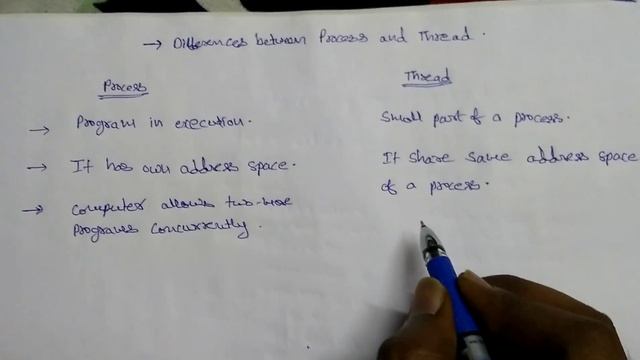 → Differences between Process and Thread.
Process
Thread
→ Program in execution.
Small part of a process.
→ It has own address space.
It share same address space
of a process.
→ Computer allows two-more
programs concurrently.